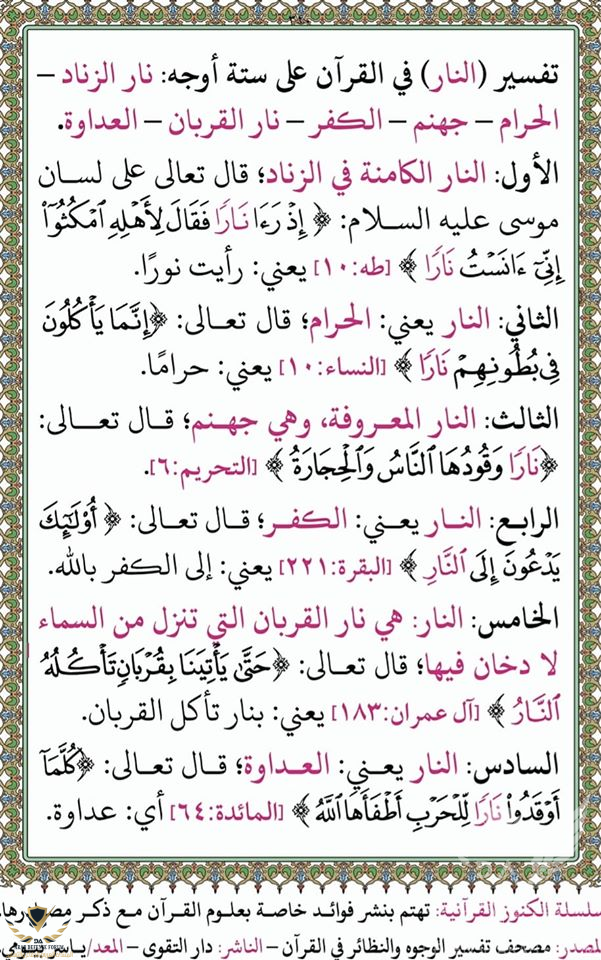 تفسير (النار) في القرآن على ستة أوجه: نار الزناد –
الحرام – جهنم – الكفر – نار القربان – العداوة.
الأول: النار الكامنة في الزناد؛ قال تعالى على لسان
موسى عليه السلام: ﴿إِذْ رَءَا نَارًا فَقَالَ لِأَهْلِهِ ٱمْكُثُوٓا۟
إِنِّىٓ ءَانَسْتُ نَارًا﴾ [طه:١٠] يعني: رأيت نورًا.
الثاني: النار يعني: الحرام؛ قال تعالى: ﴿إِنَّمَا يَأْكُلُونَ
فِى بُطُونِهِمْ نَارًا﴾ [النساء:١٠] يعني: حرامًا.
الثالث: النار المعروفة، وهي جهنم؛ قال تعالى:
﴿نَارًا وَقُودُهَا ٱلنَّاسُ وَٱلْحِجَارَةُ﴾ [التحريم:٦].
الرابع: النار يعني: الكفر؛ قال تعالى: ﴿أُو۟لَٰٓئِكَ
يَدْعُونَ إِلَى ٱلنَّارِ﴾ [البقرة:٢٢١] يعني: إلى الكفر بالله.
الخامس: النار: هي نار القربان التي تنزل من السماء
لا دخان فيها؛ قال تعالى: ﴿حَتَّىٰ يَأْتِيَنَا بِقُرْبَانٍ تَأْكُلُهُ
ٱلنَّارُ﴾ [آل عمران:١٨٣] يعني: بنار تأكل القربان.
السادس: النار يعني: العداوة؛ قال تعالى: ﴿كُلَّمَآ
أَوْقَدُوا۟ نَارًا لِّلْحَرْبِ أَطْفَأَهَا ٱللَّهُ﴾ [المائدة:٦٤] أي: عداوة.
سلسلة الكنوز القرآنية: تهتم بنشر فوائد خاصة بعلوم القرآن مع ذكر مصادرها.
المصدر: مصحف تفسير الوجوه والنظائر في القرآن – الناشر: دار التقوى – المعد/ياسر